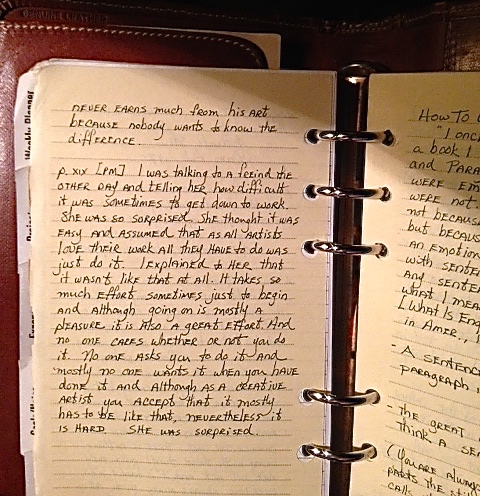 NEVER EARNS much from his ART
because nobody wants to know the
difference.
p. xix [PM] I was talking to a freind the
OTHER DAY and telling her how difficult
it was sometimes to get down to work.
She was so surprised. She thought it was
EASY and Assumed that as all Artists
love their work all they have to do was
just do it. I explained to her that
it wasn't like that at all. It takes so
much effort sometimes just to begin
and although going on is mostly a
pleasure it is also a great effort. And
no one cares whether or not you do
it. No one asks you to do it and
mostly no one wants it when you have
done it and Although as a creative
Artist you accept that it mostly
has to be like that, nevertheless it
is hard. She was surprised.
How To
"I once
a book I
and PARA
were
were not.
not because
but because
an emotion
with
any
what I mea
[What is Eng
in Amer.,
- A sentence
paragraph
- the great
think A
(You are always
calls